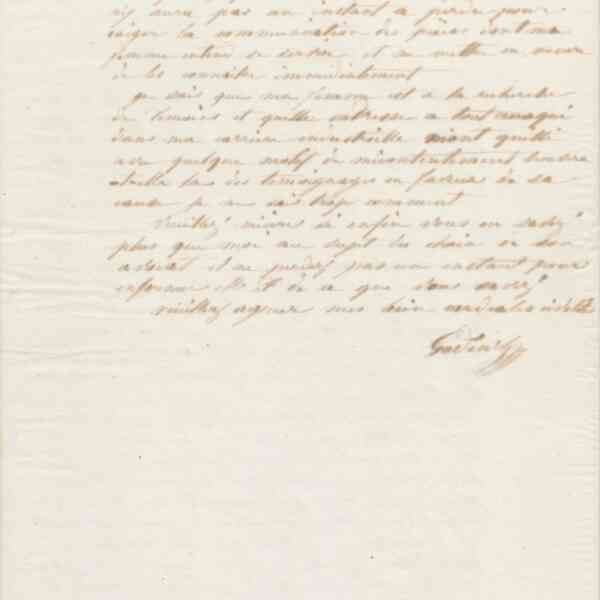 n'y aura pas un instant à perdre pour
exiger la communication des pièces dont ma
femme entend se servir et me mettre en mesure
de les connaître immédiatement
je sais que ma femme est à la recherche
de témoins et qu'elle s'adresse à tout employé
dans ma carrière industrielle m'ont quitté
avec quelque motif de mécontentement
elle des témoignages en faveur de sa
cause je ne sais trop comment
Veuillez même si enfin vous en savez
plus que moi au sujet du choix de son
avocat et ne perdez pas un instant pour
informer et de ce que vous savez
veuillez agréer mes bien cordiales
Godin